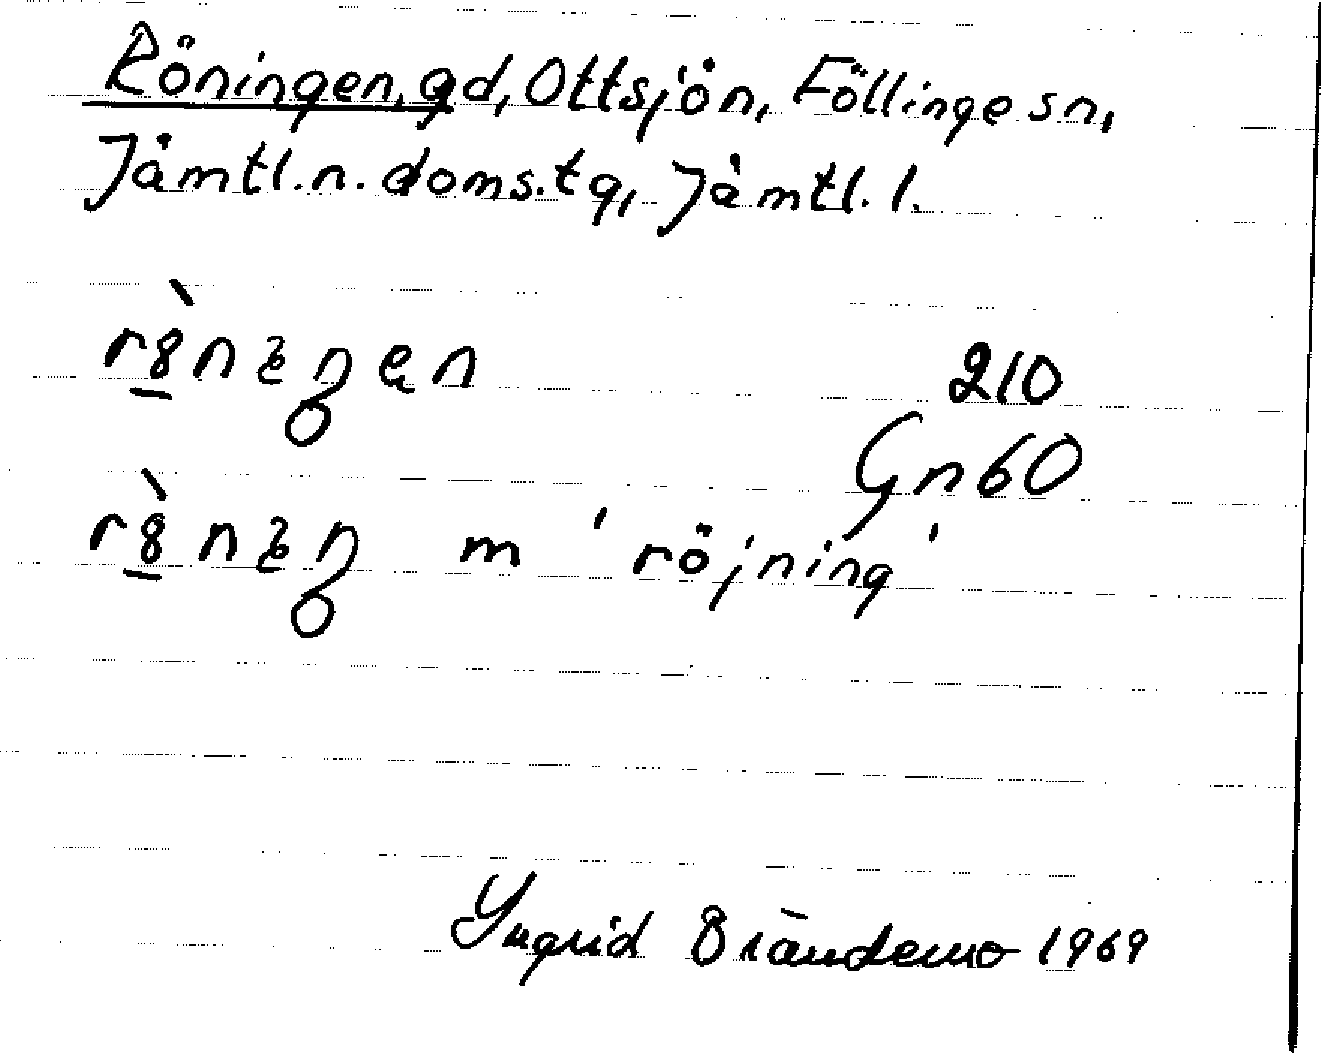 Röningen, gd, Ottsjön, Föllinge sn,
Jämtl. n. doms. tg, Jämtl. l.
210
Gn60
m 'röjning'
Ingrid Brändemo 1969